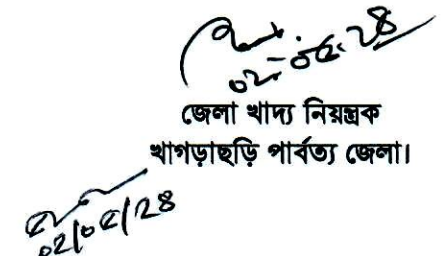 ০২-০৫-২৪
জেলা খাদ্য নিয়ন্ত্রক
খাগড়াছড়ি পার্বত্য জেলা।
০২/০৫/২৪